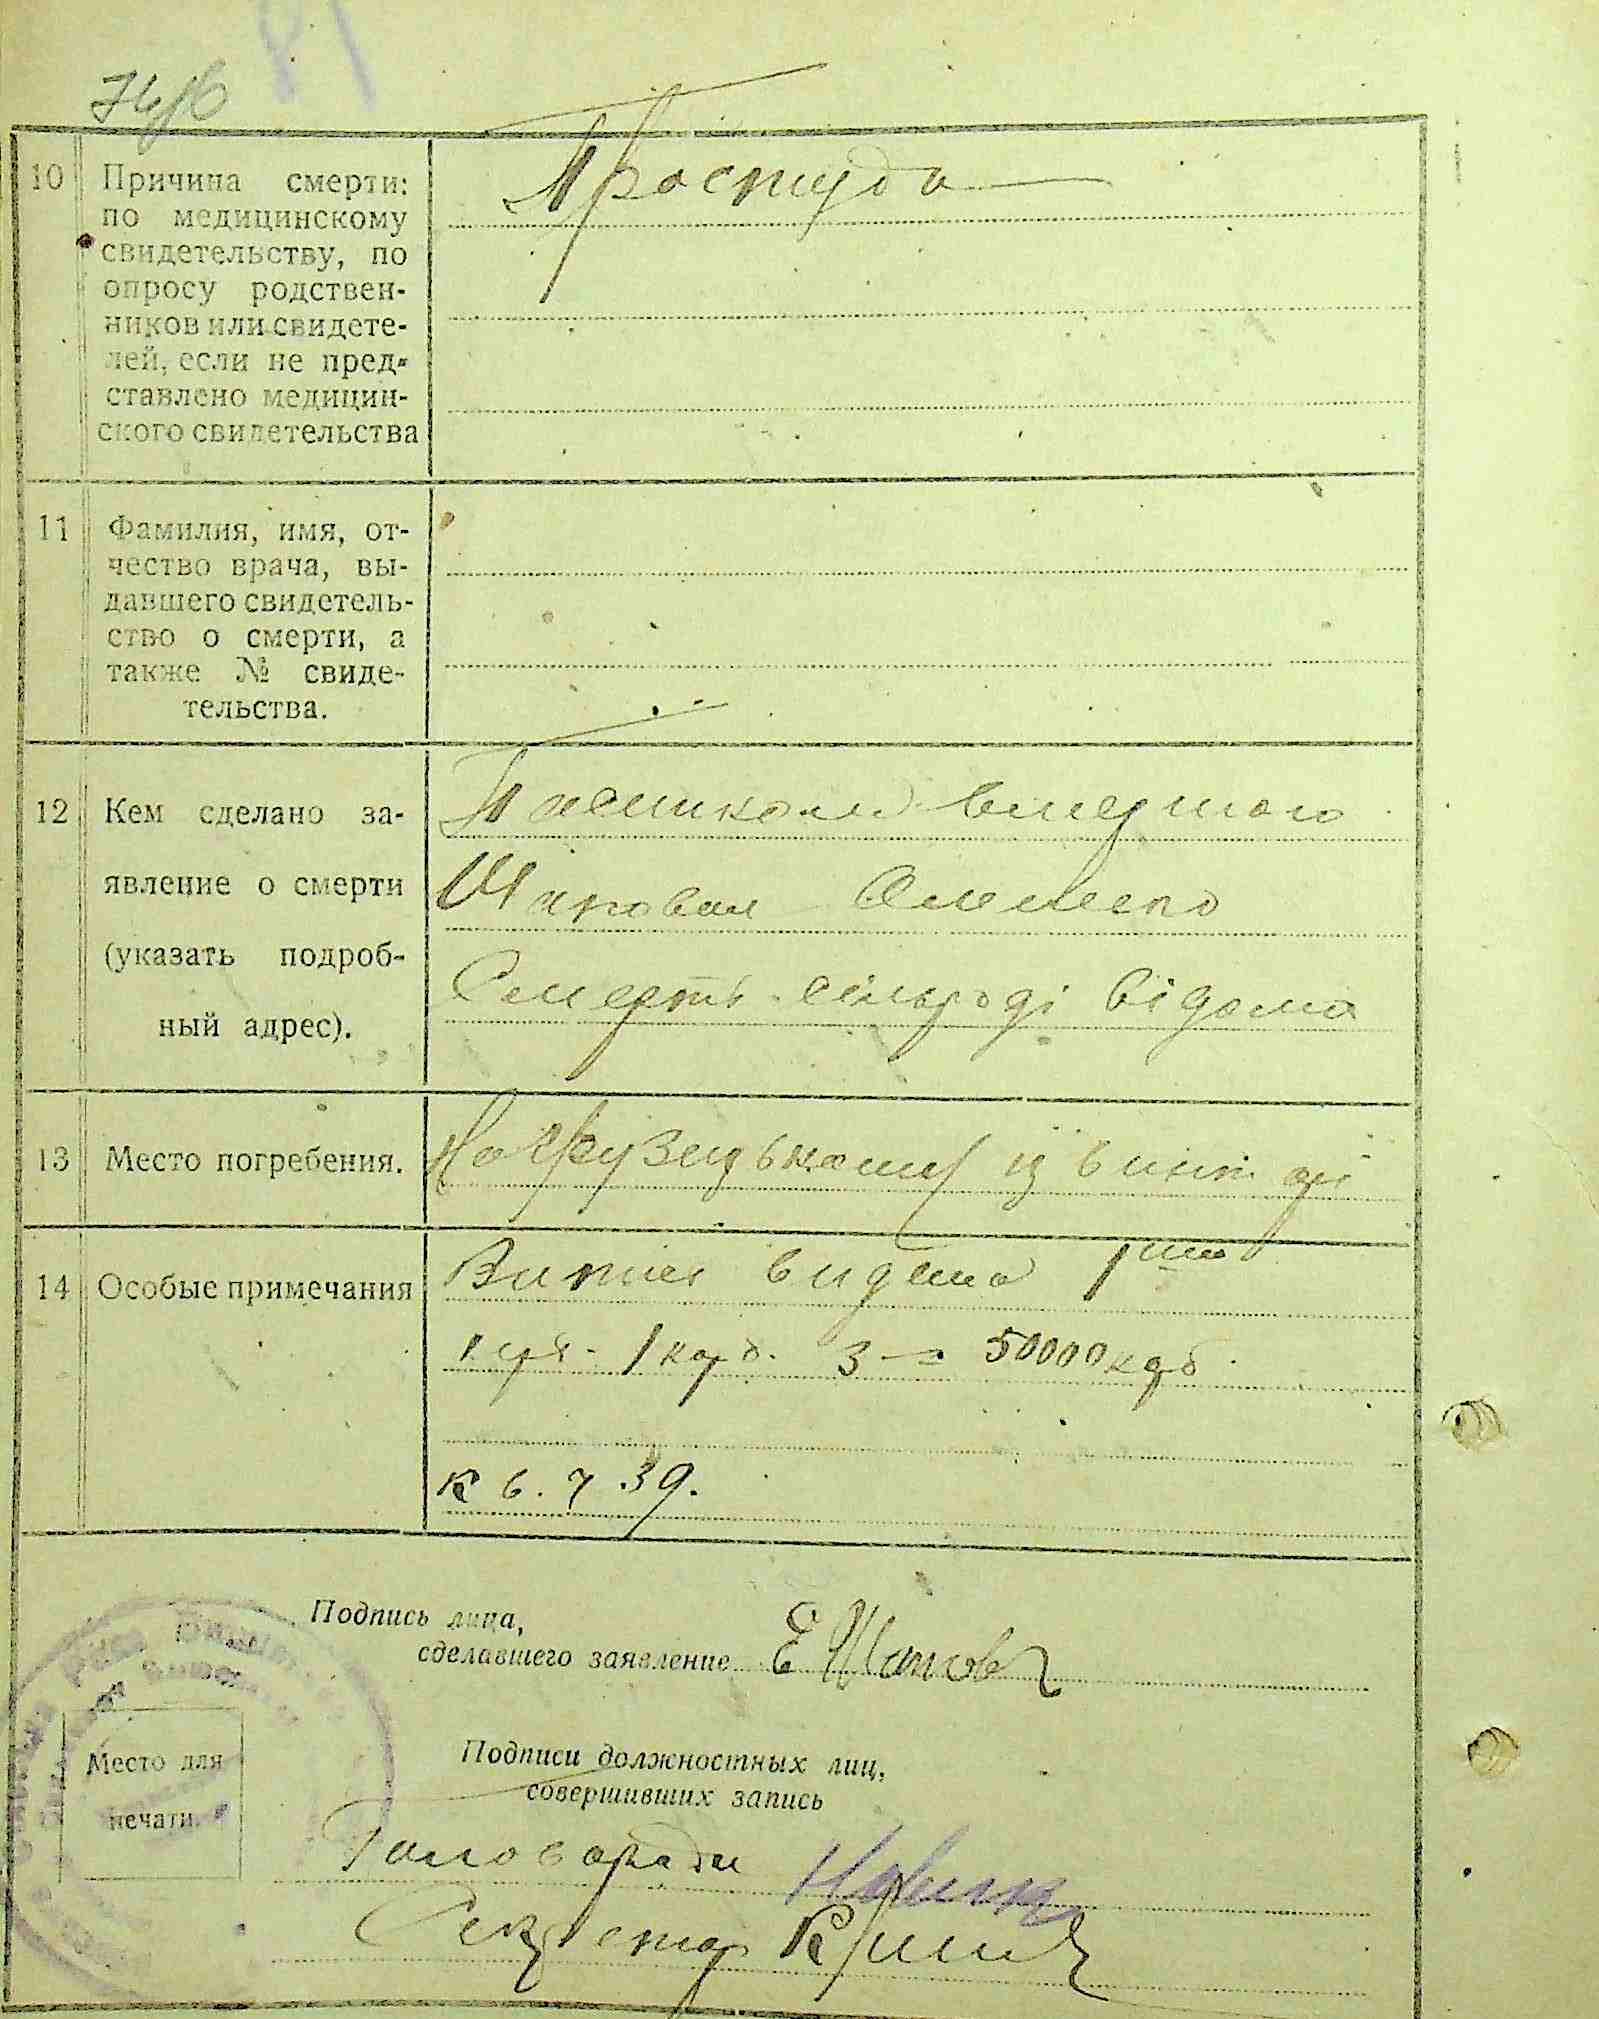 10 Причина смерти: Простуда
по медицинскому
свидетельству, по
опросу родствен-
ников или свидете-
лей, если не пред-
ставлено медицин-
ского свидетельства
11 Фамилия, имя, от-
чество врача, вы-
давшего свидетель-
ство о смерти, а
также № свиде-
тельства.
12 Кем сделано за-
явление о смерти
(указать подроб-
ный адрес).
Шаповал
Смерть сільраді відома
13 Место погребения.
На цвинтарі
14 Особые примечания
видано
1 крб. 3 50000 крб.
К 6. 7. 39.
Подпись лица,
сделавшего заявление Е Шаповал
Место для
печати.
Подписи должностных лиц,
совершивших запись
Голова ради Новик
Секретар